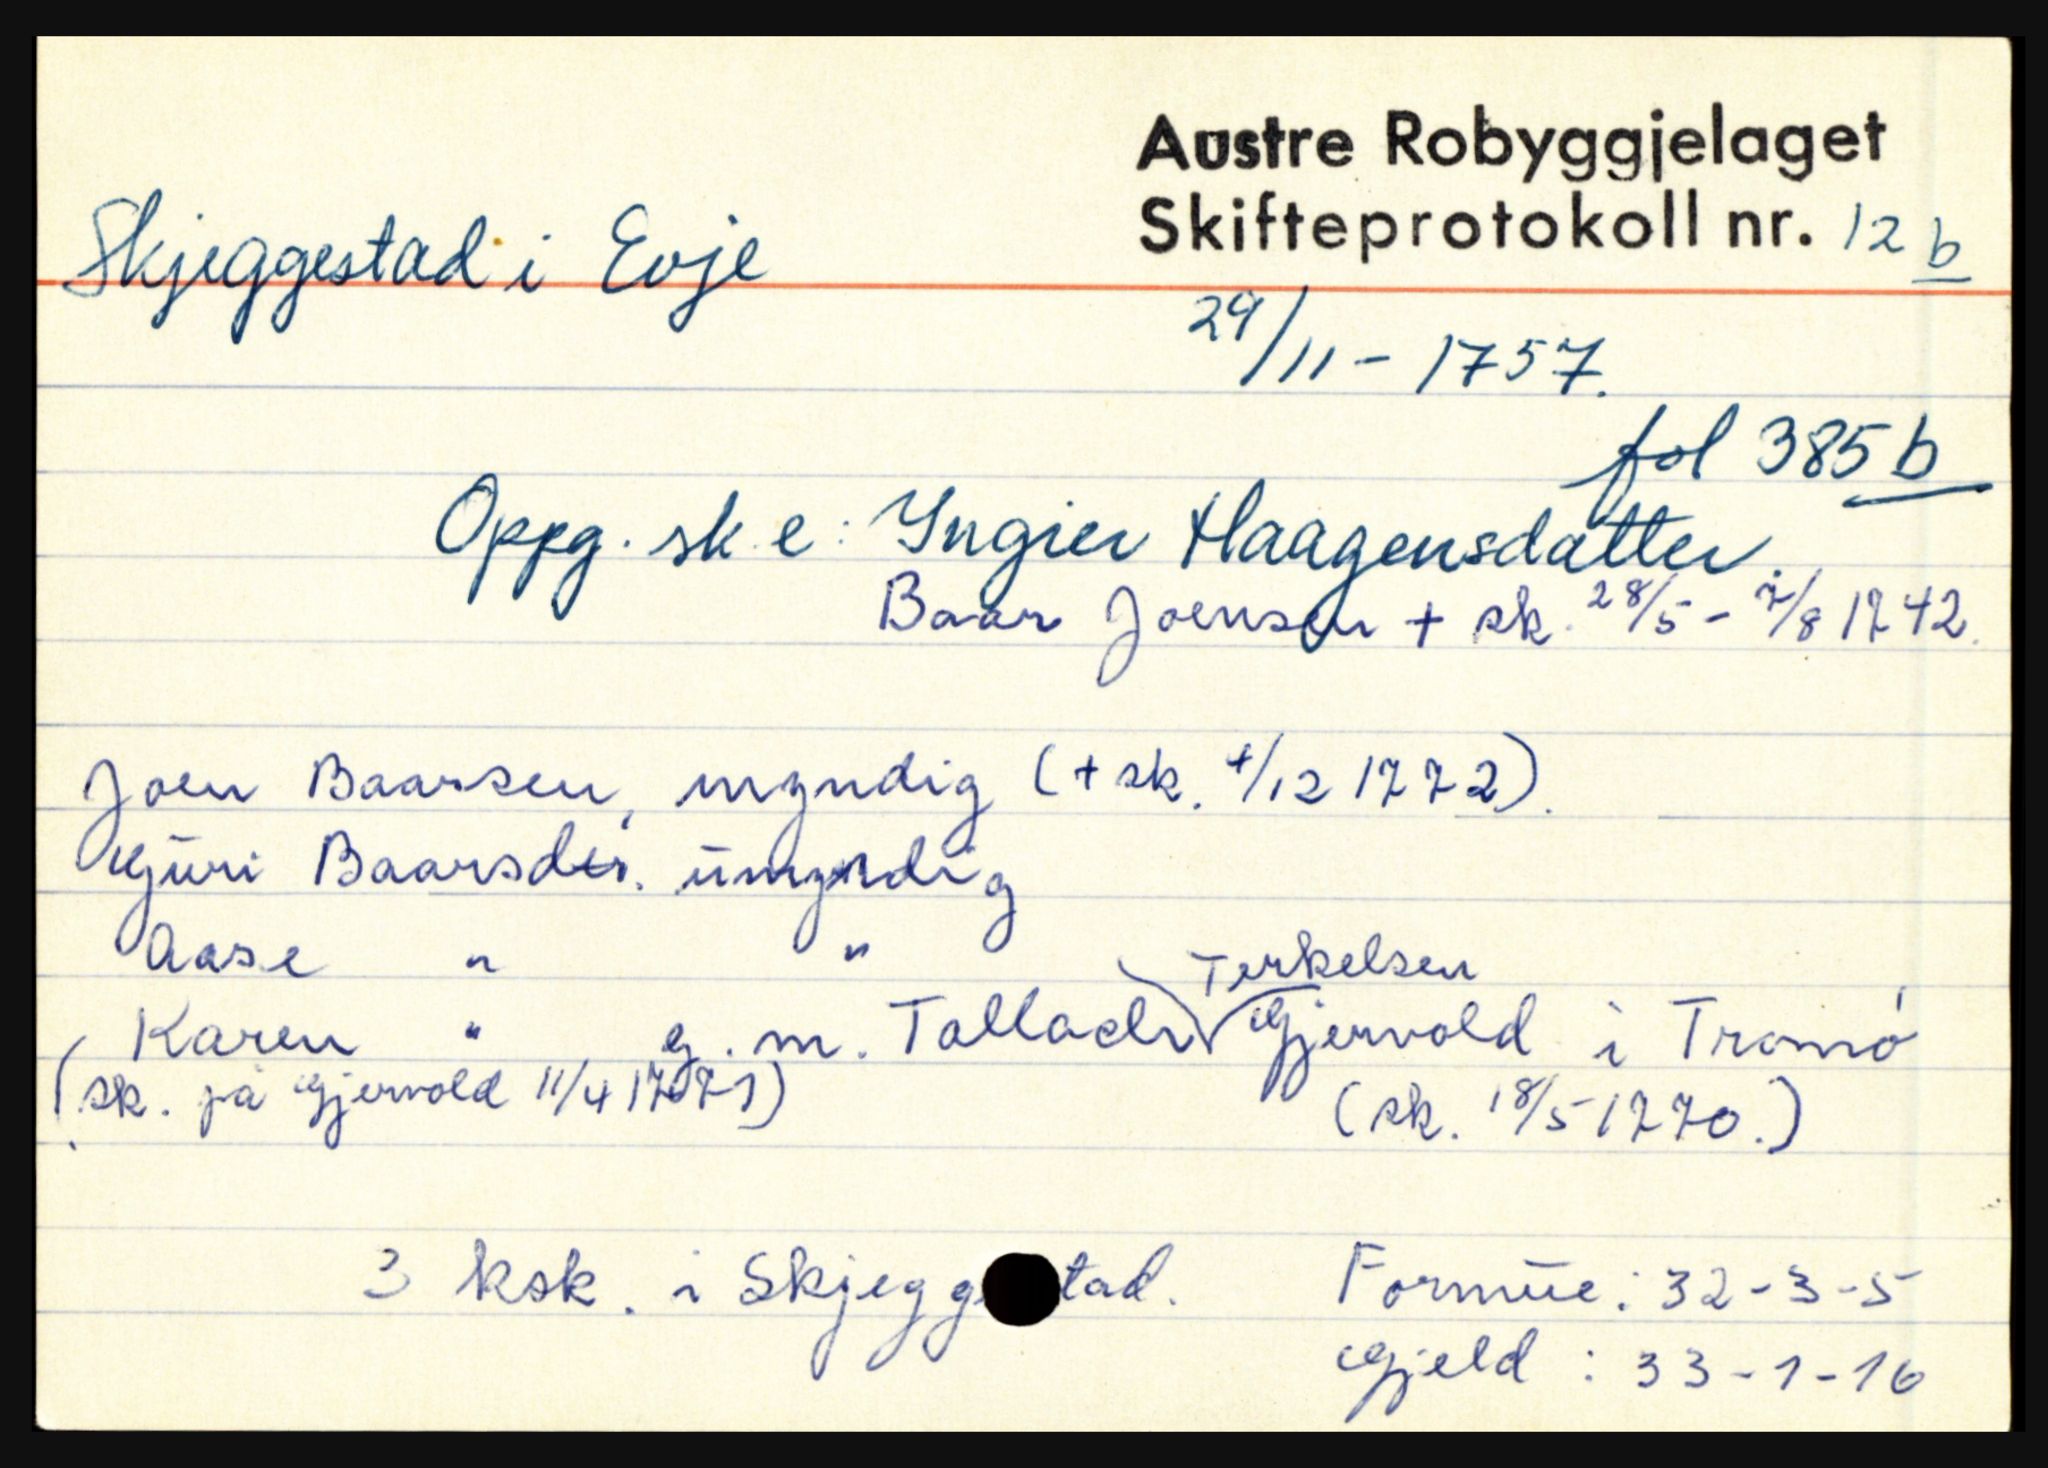 Austre Robyggjelaget
Skifteprotokoll nr. 12 b
Skjeggestad i Evje
29/11 - 1757.
fol 385 b
Oppg. sk. e: Yngier Haagensdatter.
Baar Joensen + sk. 28/5 - 7/8 1742.
Joen Baarsen, myndig (+ sk. 4/12 1772).
Guri Baarsdtr. umyndig
Aase " "
Karen " g. m. Tallach Terkelsen Gjervold i Tromø
(sk. på Gjervold 11/4 1771) (sk. 18/5 1770.)
3 ksk. i Skjegg tad. Formue: 32-3-5
Gjeld : 33-1-16